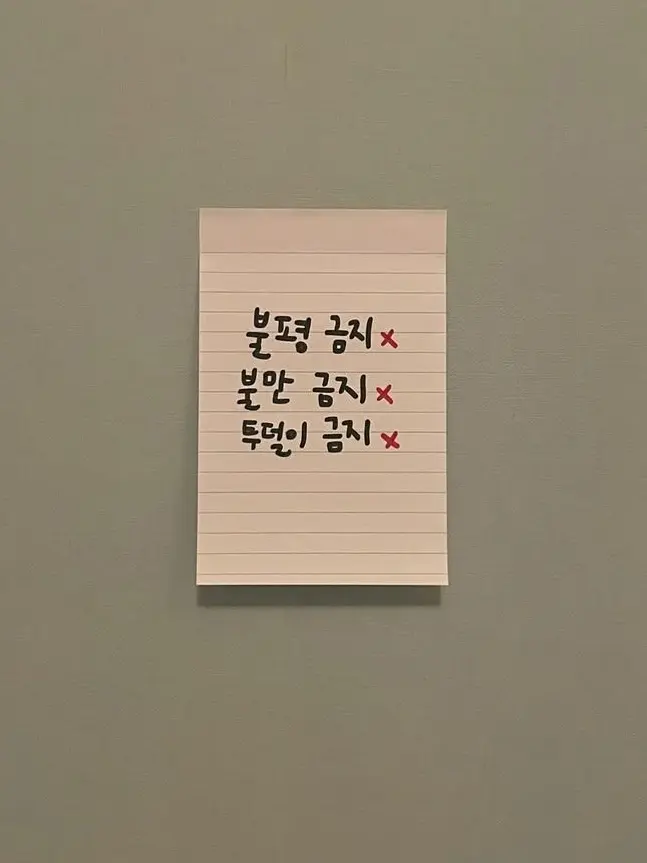 불평 금지 x
불만 금지 x
투덜이 금지 x